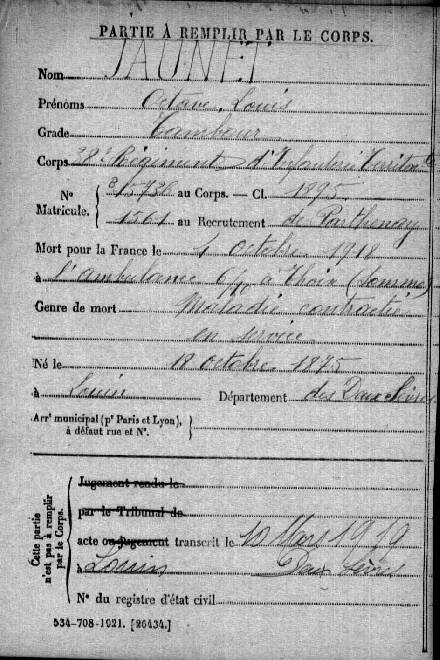 PARTIE À REMPLIR PAR LE CORPS.
Nom JAUNET
Prénoms Octave, Louis
Grade Tambour
Corps 28e Régiment d'Infanterie Territ
N° 8/5736 au Corps. — Cl. 1895
Matricule. 1561 au Recrutement de Parthenay
Mort pour la France le 1 octobre 1918
à l'ambulance à Thoix (Somme)
Genre de mort Maladie contractée
en service
Né le 18 octobre 1875
à Louin Département des Deux Sèvres
Arrt municipal (pr Paris et Lyon),
à défaut rue et N°.
Cette partie
n'est pas à remplir
par le Corps.
Jugement rendu le
par le Tribunal de
acte ou jugement transcrit le 10 Mars 1919
à Louin Deux Sèvres
N° du registre d'état civil
534-708-1921. [26434.]